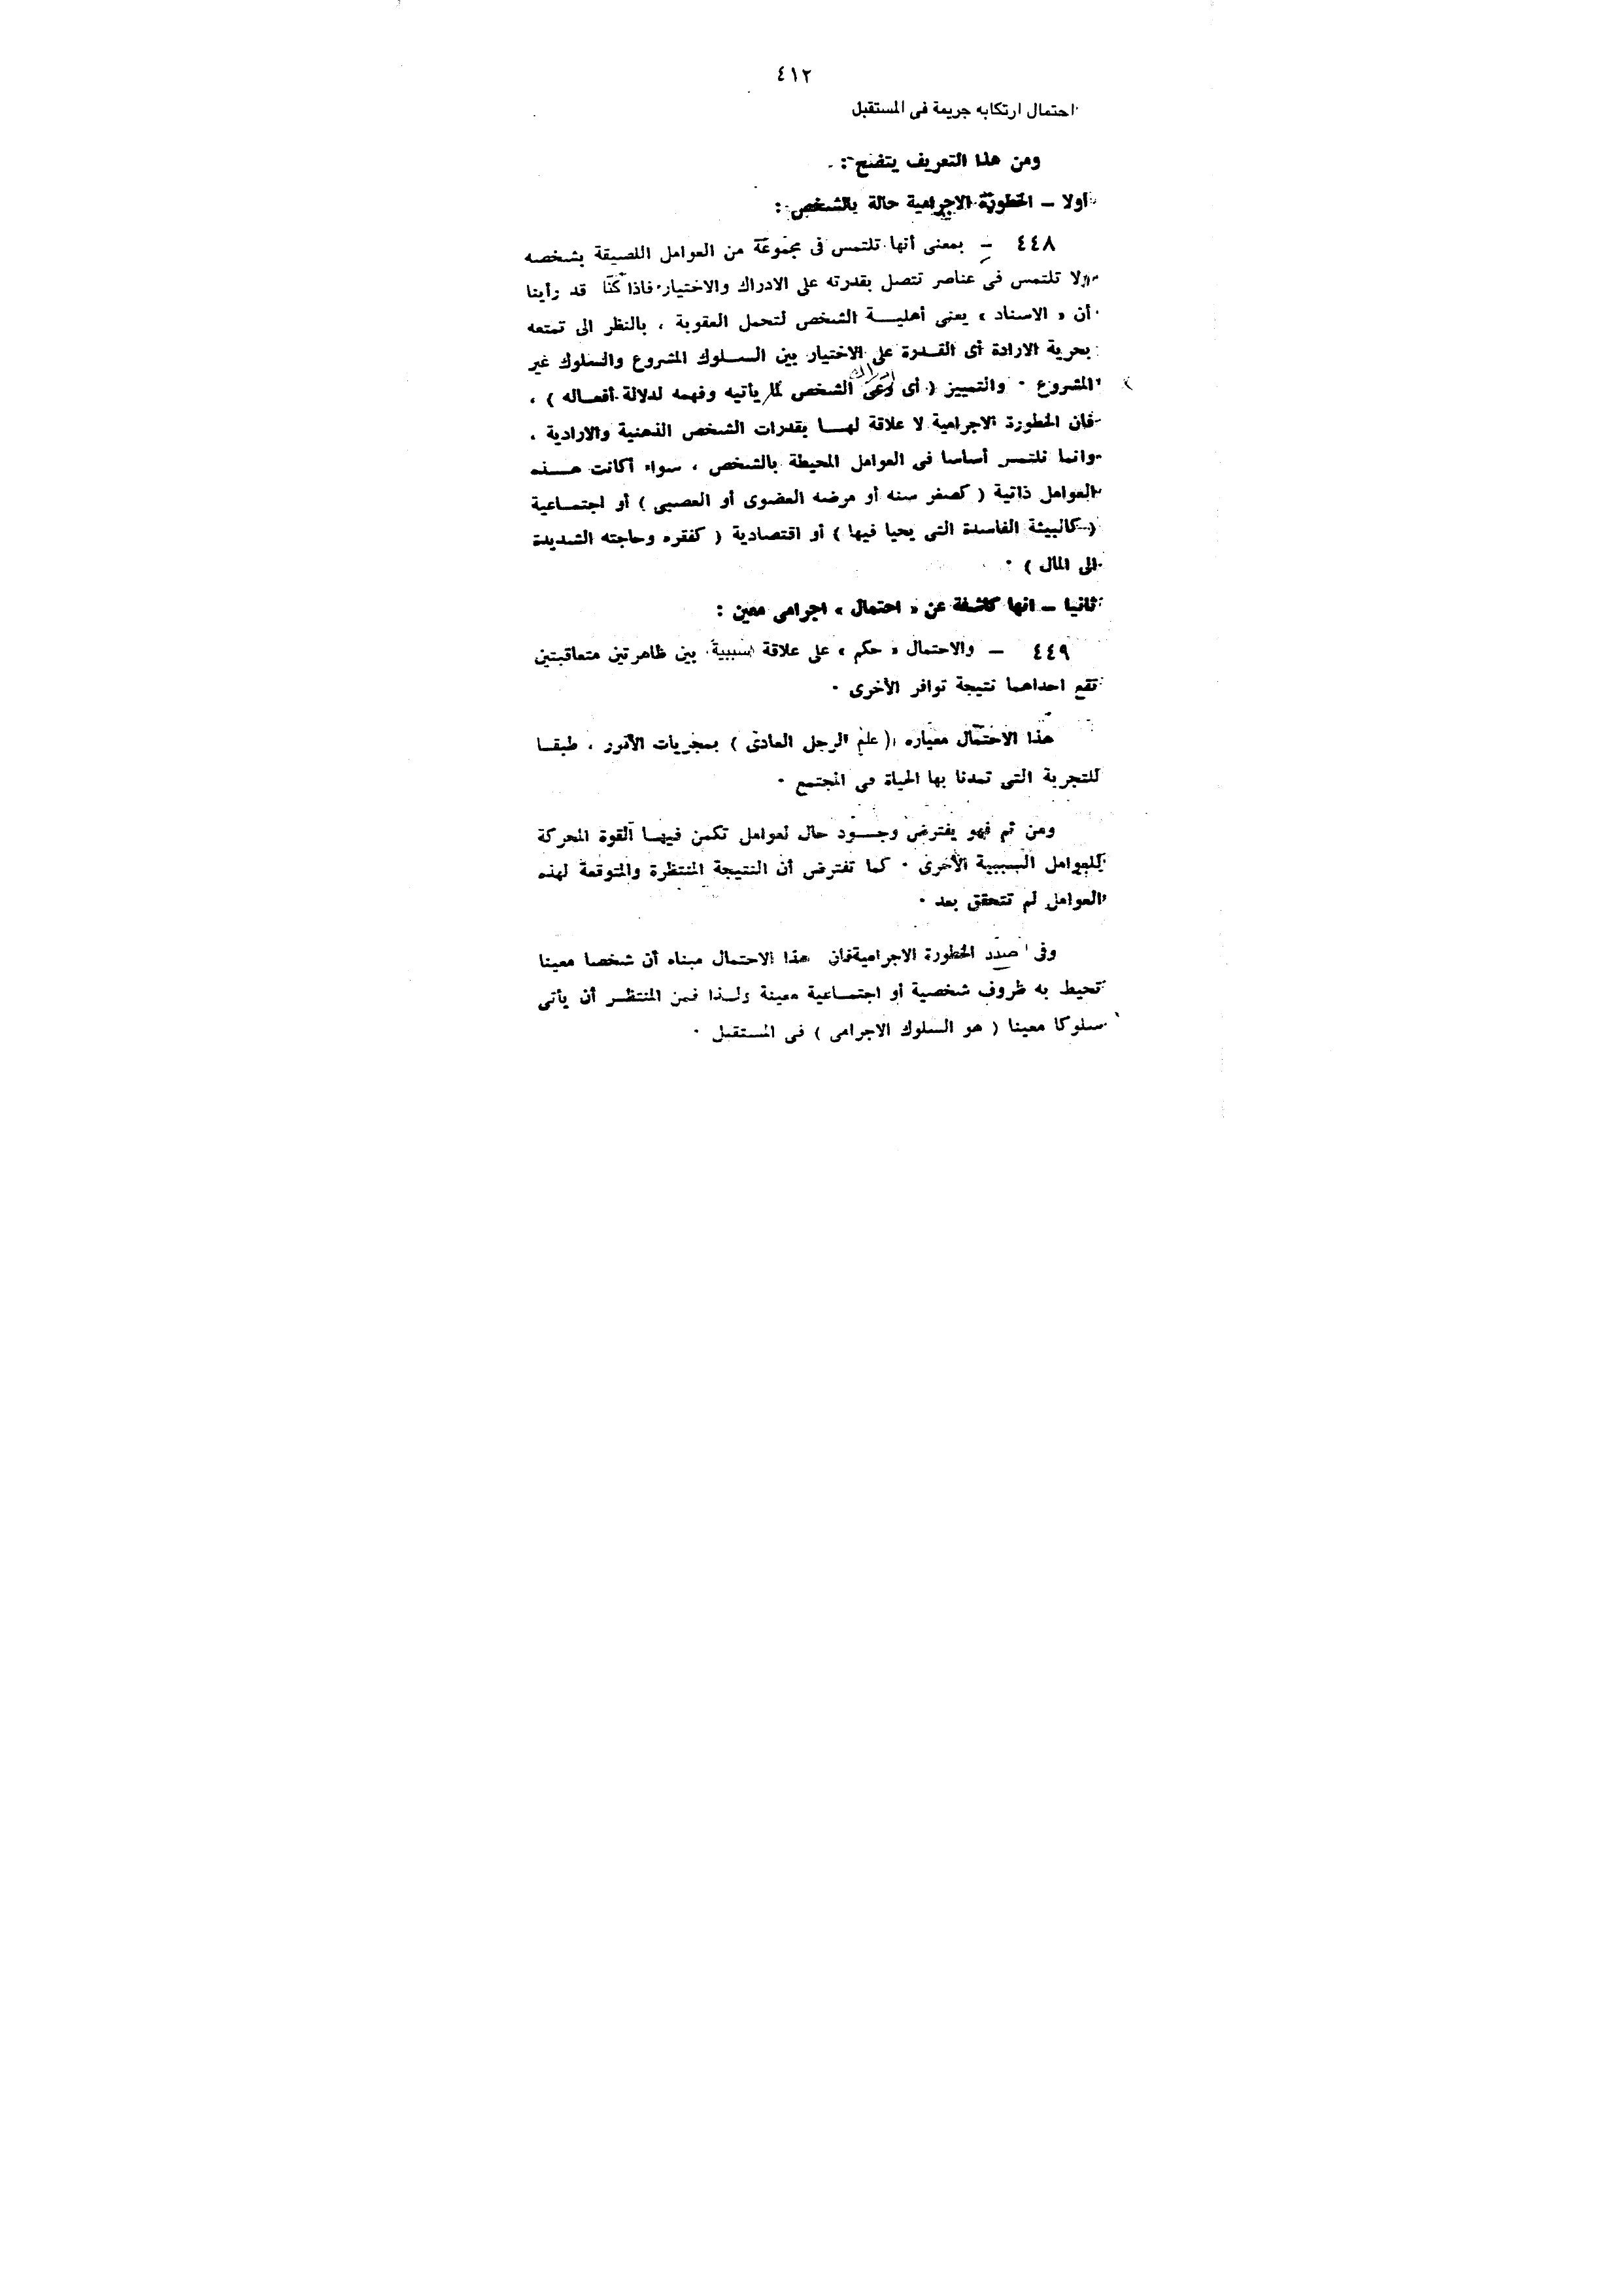 ٤١٢
احتمال ارتكابه جريمة فى المستقبل
ومن هذا التعريف يتضح :
أولا ــ الخطورة الاجرامية حالة بالشخص :
٤٤٨ ــ بمعنى أنها تلتمس فى مجموعة من العوامل اللصيقة بشخصه
ولا تلتمس فى عناصر تتصل بقدرته على الادراك والاختيار فاذا كنا قد رأينا
أن « الاسناد » يعنى أهليــة الشخص لتحمل العقوبة ، بالنظر الى تمتعه
بحرية الارادة أى القــدرة على الاختيار بين الســلوك المشروع والسلوك غير
المشروع ٠ والتمييز ( أى وعى الشخص لما يأتيه وفهمه لدلالة أفعــاله ) ،
فان الخطورة الاجرامية لا علاقة لهــا بقدرات الشخص الذهنية والارادية ،
وانما تلتمس أساسا فى العوامل المحيطة بالشخص ، سواء أكانت هــذه
العوامل ذاتية ( كصغر سنه أو مرضه العضوى أو العصبى ) أو اجتمــاعية
( كالبيئة الفاسدة التى يحيا فيها ) أو اقتصادية ( كفقره وحاجته الشديدة
الى المال ) ٠
ثانيا ــ انها كاشفة عن « احتمال » اجرامى معين :
٤٤٩ ــ والاحتمال « حكم » على علاقة سببية بين ظاهرتين متعاقبتين
تقع احداهما نتيجة توافر الأخرى ٠
هذا الاحتمال معياره ( علم الرجل العادى ) بمجريات الأمور ، طبقــا
للتجربة التى تمدنا بها الحياة فى المجتمع ٠
ومن ثم فهو يفترض وجــود حال لعوامل تكمن فيهــا القوة المحركة
للعوامل السببية الأخرى ٠ كما تفترض أن النتيجة المنتظرة والمتوقعة لهذه
العوامل لم تتحقق بعد ٠
وفى صدد الخطورة الاجرامية فان هذا الاحتمال مبناه أن شخصا معينا
تحيط به ظروف شخصية أو اجتمــاعية معينة ولــذا فمن المنتظــر أن يأتى
سلوكا معينا ( هو السلوك الاجرامى ) فى المستقبل ٠